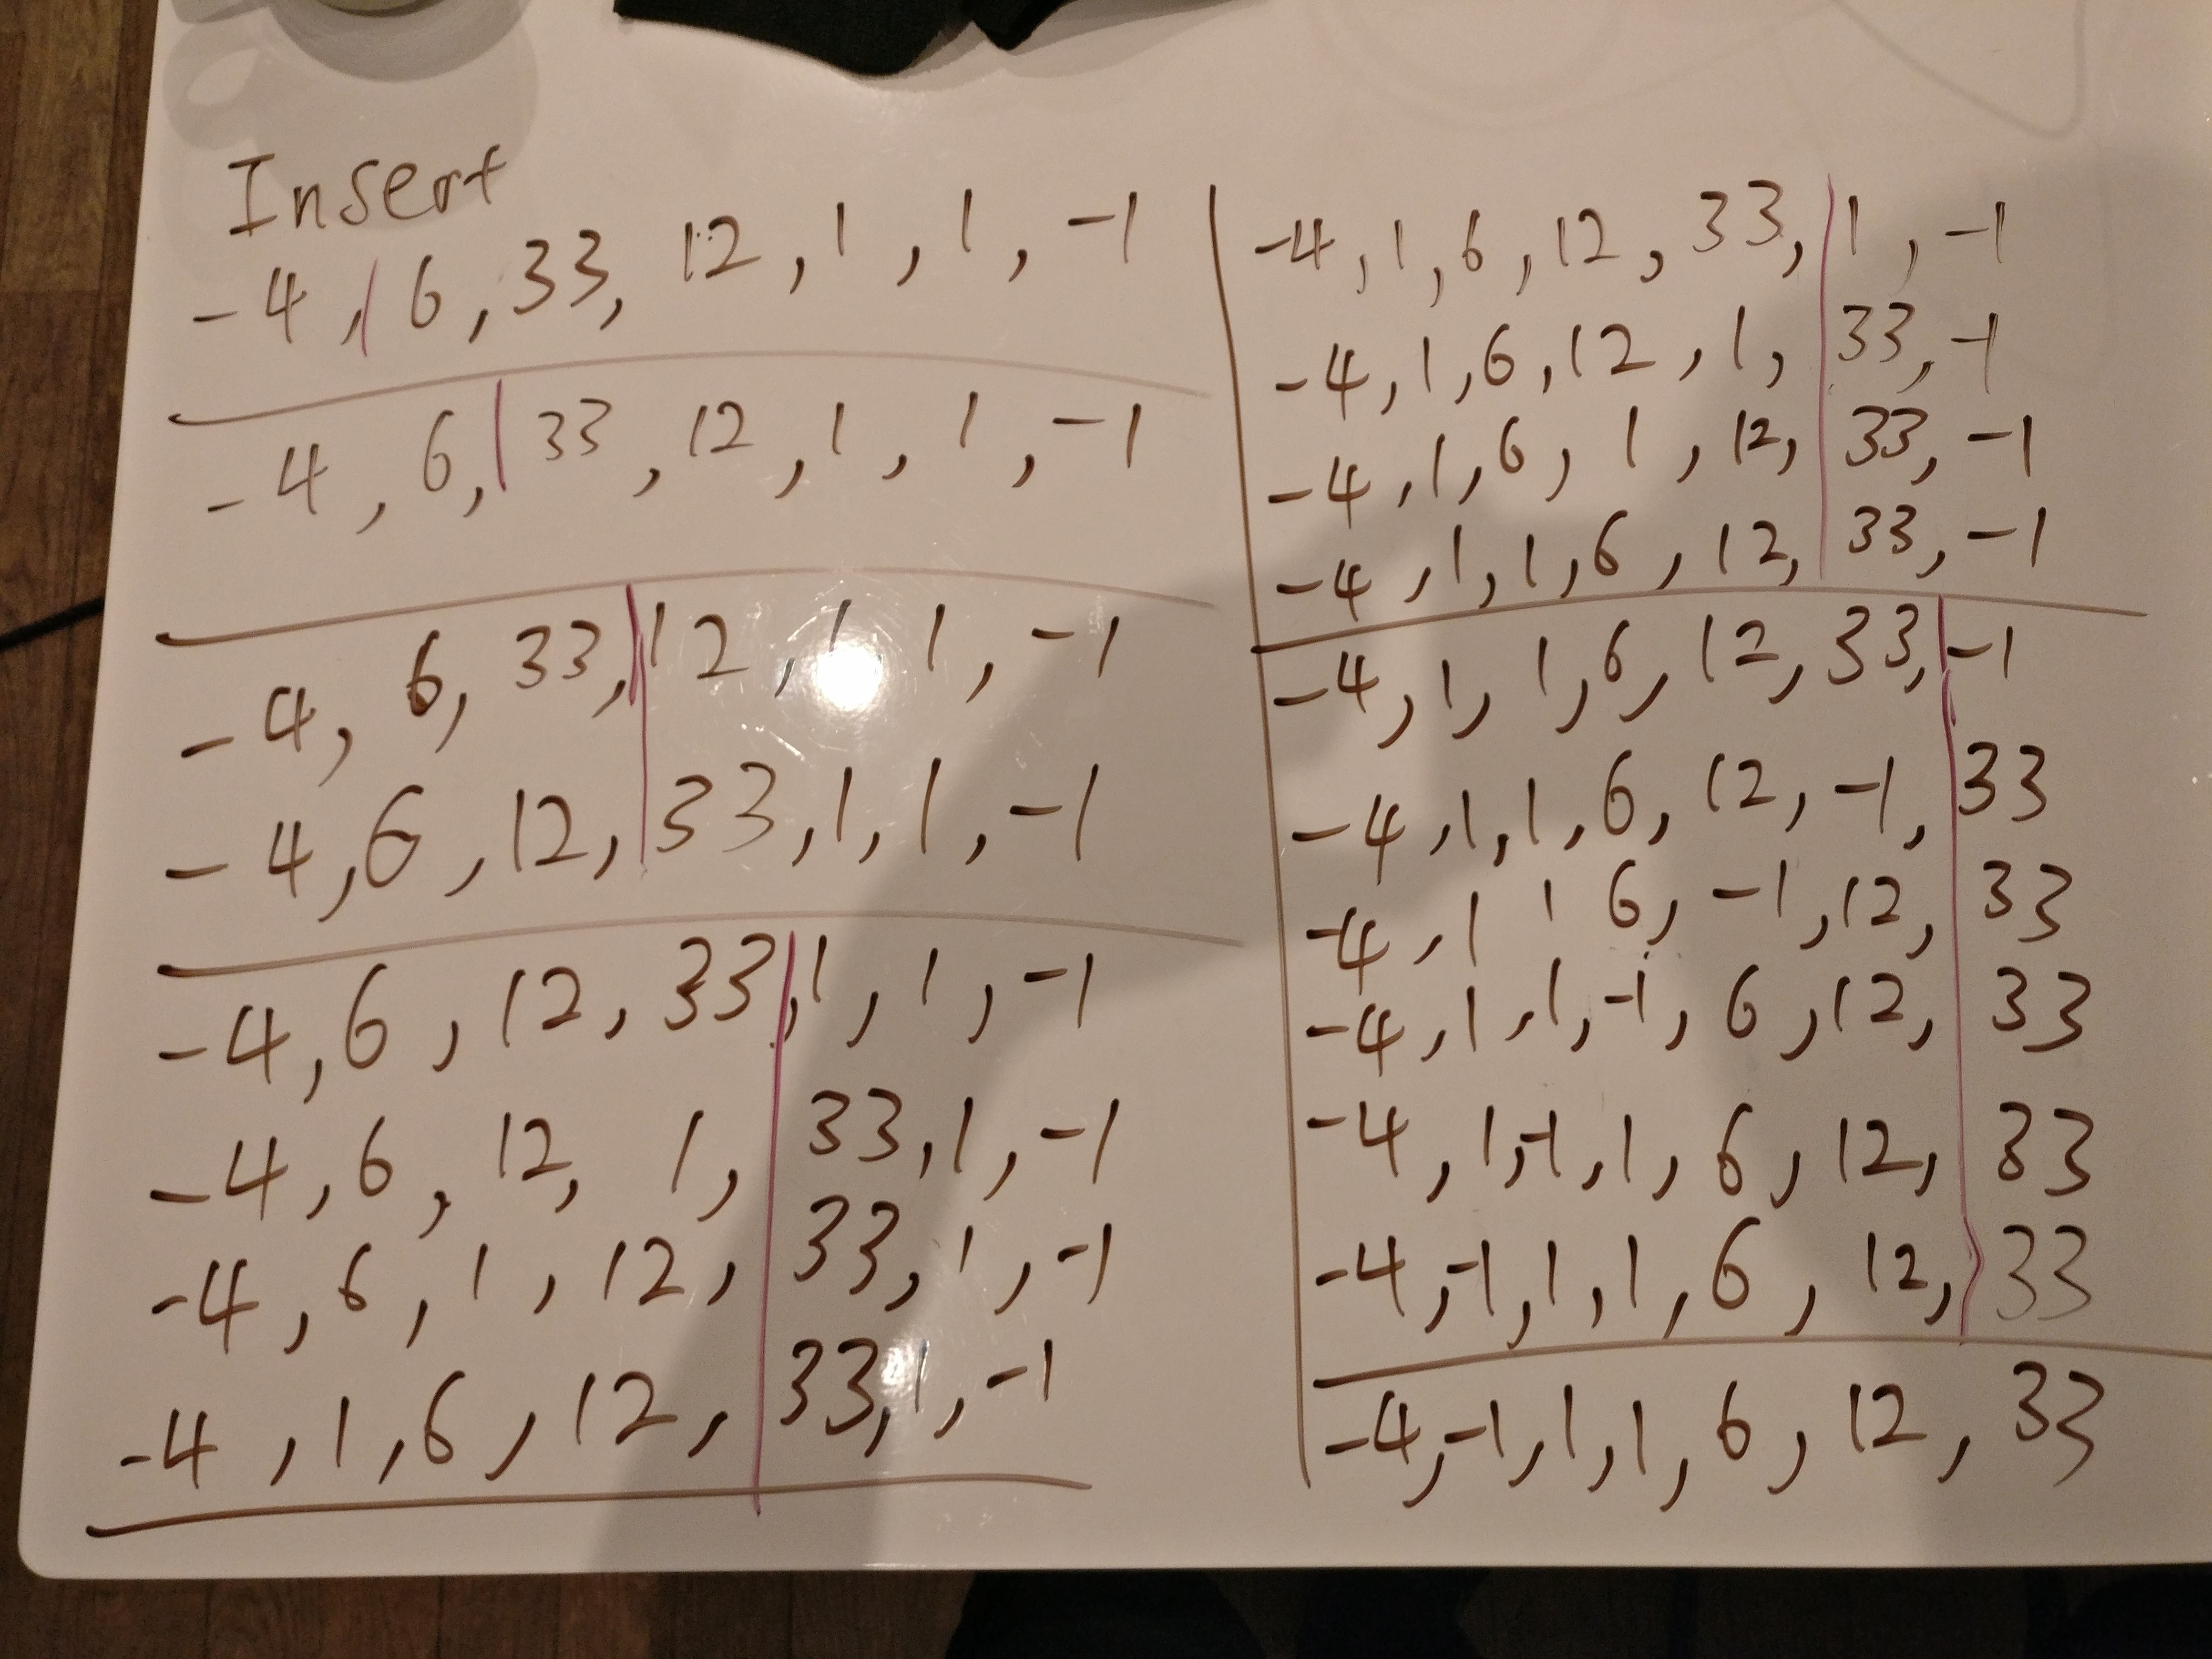 Insert
-4, 6, 33, 12, 1, 1, -1
-4, 6, 33, 12, 1, 1, -1
-4, 6, 33, 12, 1, 1, -1
-4, 6, 12, 33, 1, 1, -1
-4, 6, 12, 33, 1, 1, -1
-4, 6, 12, 1, 33, 1, -1
-4, 6, 1, 12, 33, 1, -1
-4, 1, 6, 12, 33, 1, -1
-4, 1, 6, 12, 33, 1, -1
-4, 1, 6, 12, 1, 33, -1
-4, 1, 6, 1, 12, 33, -1
-4, 1, 1, 6, 12, 33, -1
-4, 1, 1, 6, 12, 33, -1
-4, 1, 1, 6, 12, -1, 33
-4, 1 1 6, -1, 12, 33
-4, 1, 1, -1, 6, 12, 33
-4, 1, -1, 1, 6, 12, 33
-4, -1, 1, 1, 6, 12, 33
-4, -1, 1, 1, 6, 12, 33